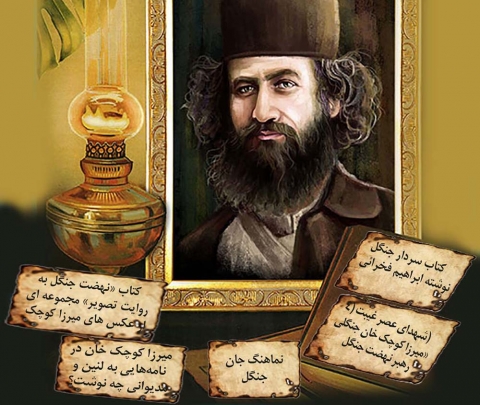 کتاب سردار جنگل
نوشته ابراهیم فخرائی
کتاب «نهضت جنگل به
روایت تصویر» مجموعه ای
از عکس های میرزا کوچک
(شهدای عصر غیبت (۴
«میرزا کوچک خان جنگلی
رهبر نهضت جنگل
میرزا کوچک خان در
نامه‌هایی به لنین و
مدیوانی چه نوشت؟
نماهنگ جان
جنگل